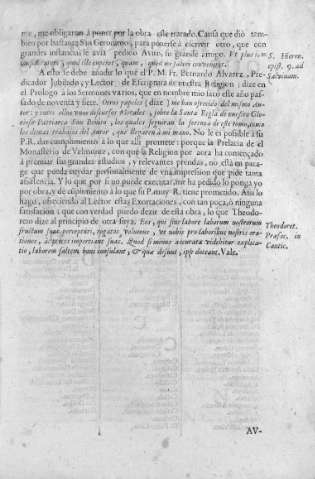 me, me obligaran à poner por la obra este tratado. Causa que diò tam-
bien por bastante San Geronimo, para ponerse à escrivir otro, que con
grandes instancias le avia pedido Avito, su grande amigo. Et
S. Hieron.
epist. 9. ad
Salvinam.
A esto se debe añadir lo que el P. M. Fr. Bernardo Alvarez, Pre-
dicador Jubilado, y Lector de Escriptura de nuestra Religion, dize en
el Prologo à los Sermones varios, que en nombre mio sacò este año pas-
sado de noventa y siete. Otros papeles (dize) me han ofrecido del mismo Au-
tor: y entre ellos unos discursos Morales, sobre la Santa Regla de nuestro Glo-
rioso Patriarca San Benito, los quales seguiràn la fortuna de este tomo, como
los demas trabajos del Autor, que llegaren à mi mano. No le es possible à su
P.R. dar cumplimiento à lo que alli promete; porque la Prelacia de el
Monasterio de , con que la Religion por aora ha començado
à premiar sus grandes estudios, y relevantes prendas, no està en para-
ge que pueda cuydar personalmente de una impression que pide tanta
assistencia. Y lo que por si no puede executar, me ha pedido lo ponga yo
por obra, y dè cumplimiento à lo que su Paternidad R. tiene prometido. Assi lo
hago, ofreciendo al Lector estas Exortaciones, con tan poca, ò ninguna
satisfacion; que con verdad puedo dezir de esta obra, lo que Theodo-
reto dize al principio de otra suya. Eos, qui sine labore laborum nostrorum
fructum sunt percepturi, rogatos volumus, ut nobis pro laboribus nostris ora-
tiones, ac preces impertiant suas. Quod si minus accurata videbitur explica-
tio, laborem saltem boni consulant, & quæ desunt, ipsi doceant. Vale.
Theodoret.
Præfac. in
Cantic.
AV-